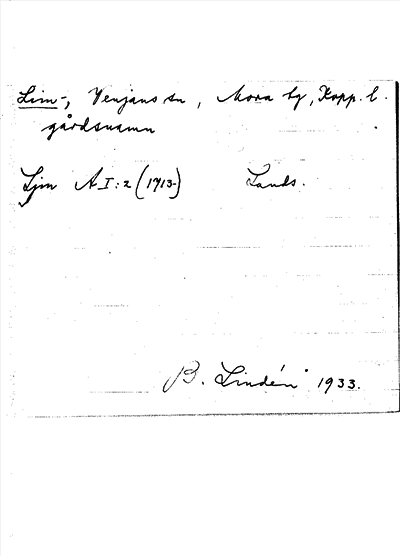 Lim-, Venjans sn, Mora tg, Kopp. l.
gårdsnamn
Ljm A I:2 (1713-) Lands.
B. Lindén 1933.